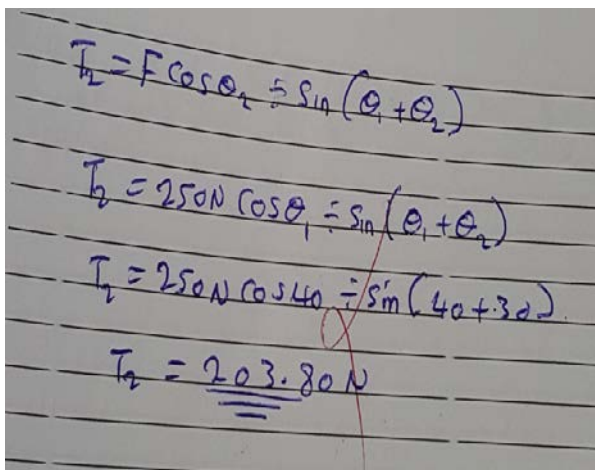 T₂ = Fcosθ₂ ÷ sin(θ₁+θ₂)
T₂ = 250N cosθ₁ ÷ sin(θ₁+θ₂)
T₂ = 250N cos40 ÷ sin(40+30).
T₂ = 203.80N